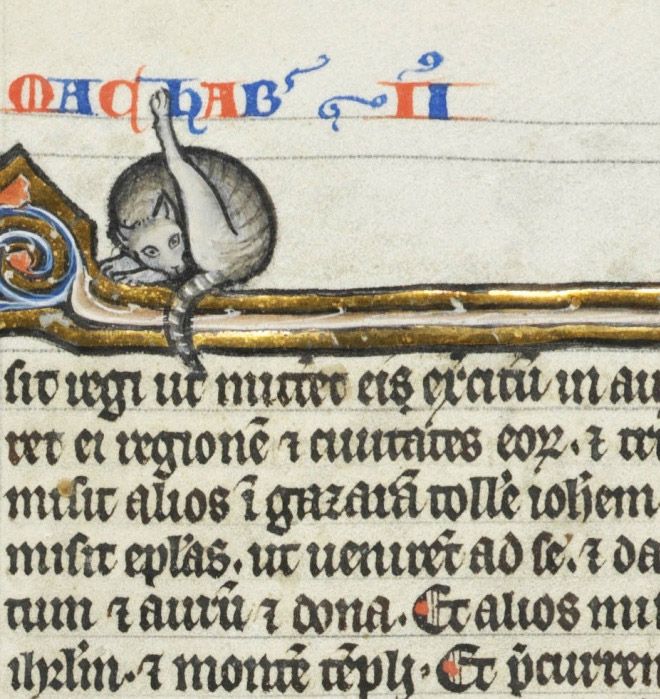 MACHAB' II
sit regi ut mittet eis exc̓itū in au
ret ei regionē ⁊ ciuitates eoꝝ. ⁊ tri
misit alios ī gazarā tolle̓ ioh̄em
misit ep̄las. ut uenirēt ad se. ⁊ da
tum ⁊ aurū ⁊ dona. Et alios mi
ihrl̄m. ⁊ montē tēpli. Et p̄curren